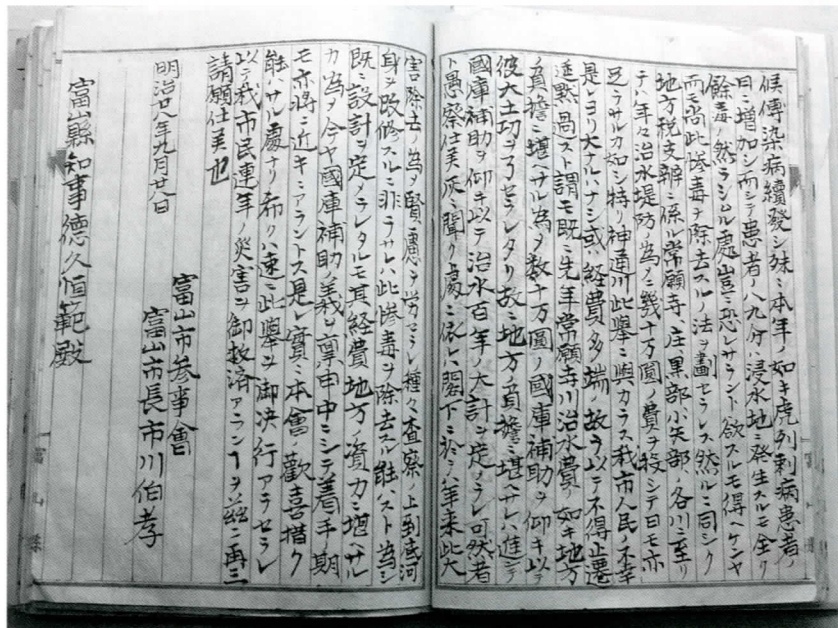 候傳染病續發シ殊ニ本年ノ如キ虎列剌病患者ノ
日ニ増加シ而シテ患者ノ八九分ハ浸水地ニ発生スルモ全ク
餘毒ノ然ラシムル處豈ニ恐レサラント欲スルモ得ヘケンヤ
而モ尚此惨毒ヲ除去スルノ法ヲ畫セラレス然ルニ同シク
地方税支辨ニ係ル常願寺、庄黒部小矢部ノ各川ニ至リ
テハ年々治水堤防ノ為メニ幾十万圓ノ費ヲ投シテ曰モ亦
足ラサルカ如シ特リ神通川此舉ニ與カラス我市人民ノ不幸
是レヨリ大ナルハナシ或ハ経費多端ノ故ヲ以テ不得止遷
延黙過スト謂モ既ニ先年常願寺川治水費ノ如キ地方
ノ負擔ニ堪ヘサル為メ数十万圓ノ國庫補助ヲ仰キ以テ
彼大工切ヲ了セラレタリ故ニ地方ノ負擔ニ堪ヘサレハ進テ
國庫補助ヲ仰キ以テ治水百年ノ大計ヲ定メラレ可然者
ト愚察仕候仄ニ聞ク處ニ依レハ閣下ニ於テハ年来此大
害除去ノ為メ賢慮ヲ労セラレ種々査察ノ上到底河
身ヲ改修スルニ非ラサレハ此惨毒ヲ除去スル能ハスト為シ
既ニ設計ヲ定メラレタルモ其経費地方ノ資力ニ堪ヘサル
カ為メ今ヤ國庫補助ノ義ヲ稟申中ニシテ着手期
モ亦將ニ近キニアラントス是レ實ニ本會ノ歓喜措ク
能ハサル處ナリ希クハ速ニ此舉ヲ御決行アラセラレ
以テ我市民連年ノ災害ヲ御救済アランヿヲ茲ニ再三
請願仕候也
明治廿八年九月廿八日
富山市参事會
富山市長市川伯孝
富山縣知事德久恒範殿
富山縣